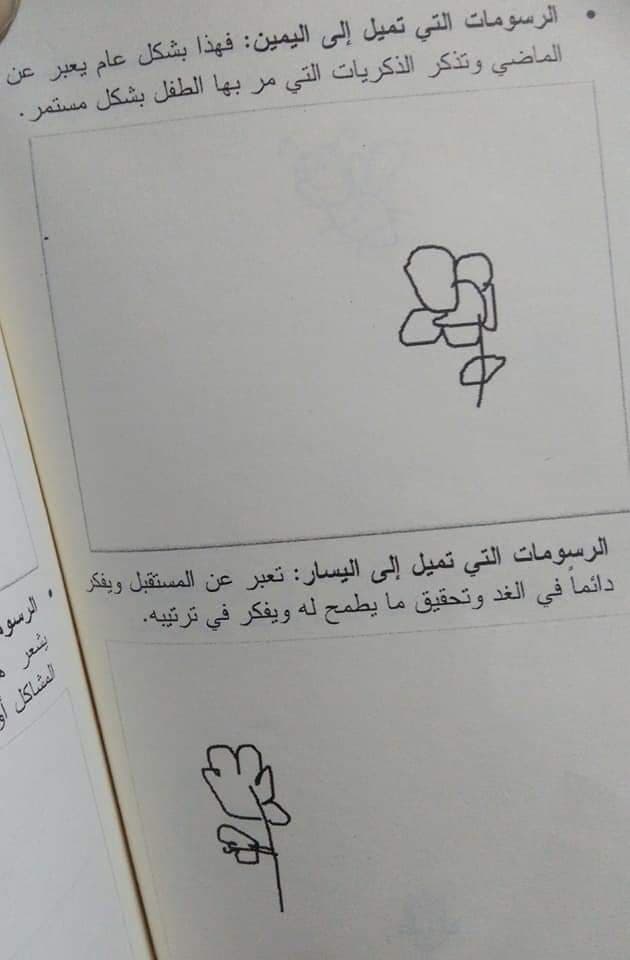 • الرسومات التي تميل إلى اليمين: فهذا بشكل عام يعبر عن
الماضي وتذكر الذكريات التي مر بها الطفل بشكل مستمر.
الرسومات التي تميل إلى اليسار: تعبر عن المستقبل ويفكر
دائماً في الغد وتحقيق ما يطمح له ويفكر في ترتيبه.
•
يشعر
المشاكل